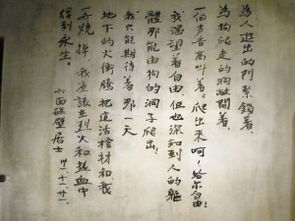 為人進出的门緊鎖着，
為狗爬走的洞敞開着，
一個声音高叫着：爬出來呵，給尔自由！
我渴望着自由，但也深知到人的軀
體那能由狗的洞子爬出！
我只能期待着那一天
地下的火衝騰，把這活棺材和我
一齊燒掉，我应該在烈火和热血中
得到永生。
六面碰壁居士